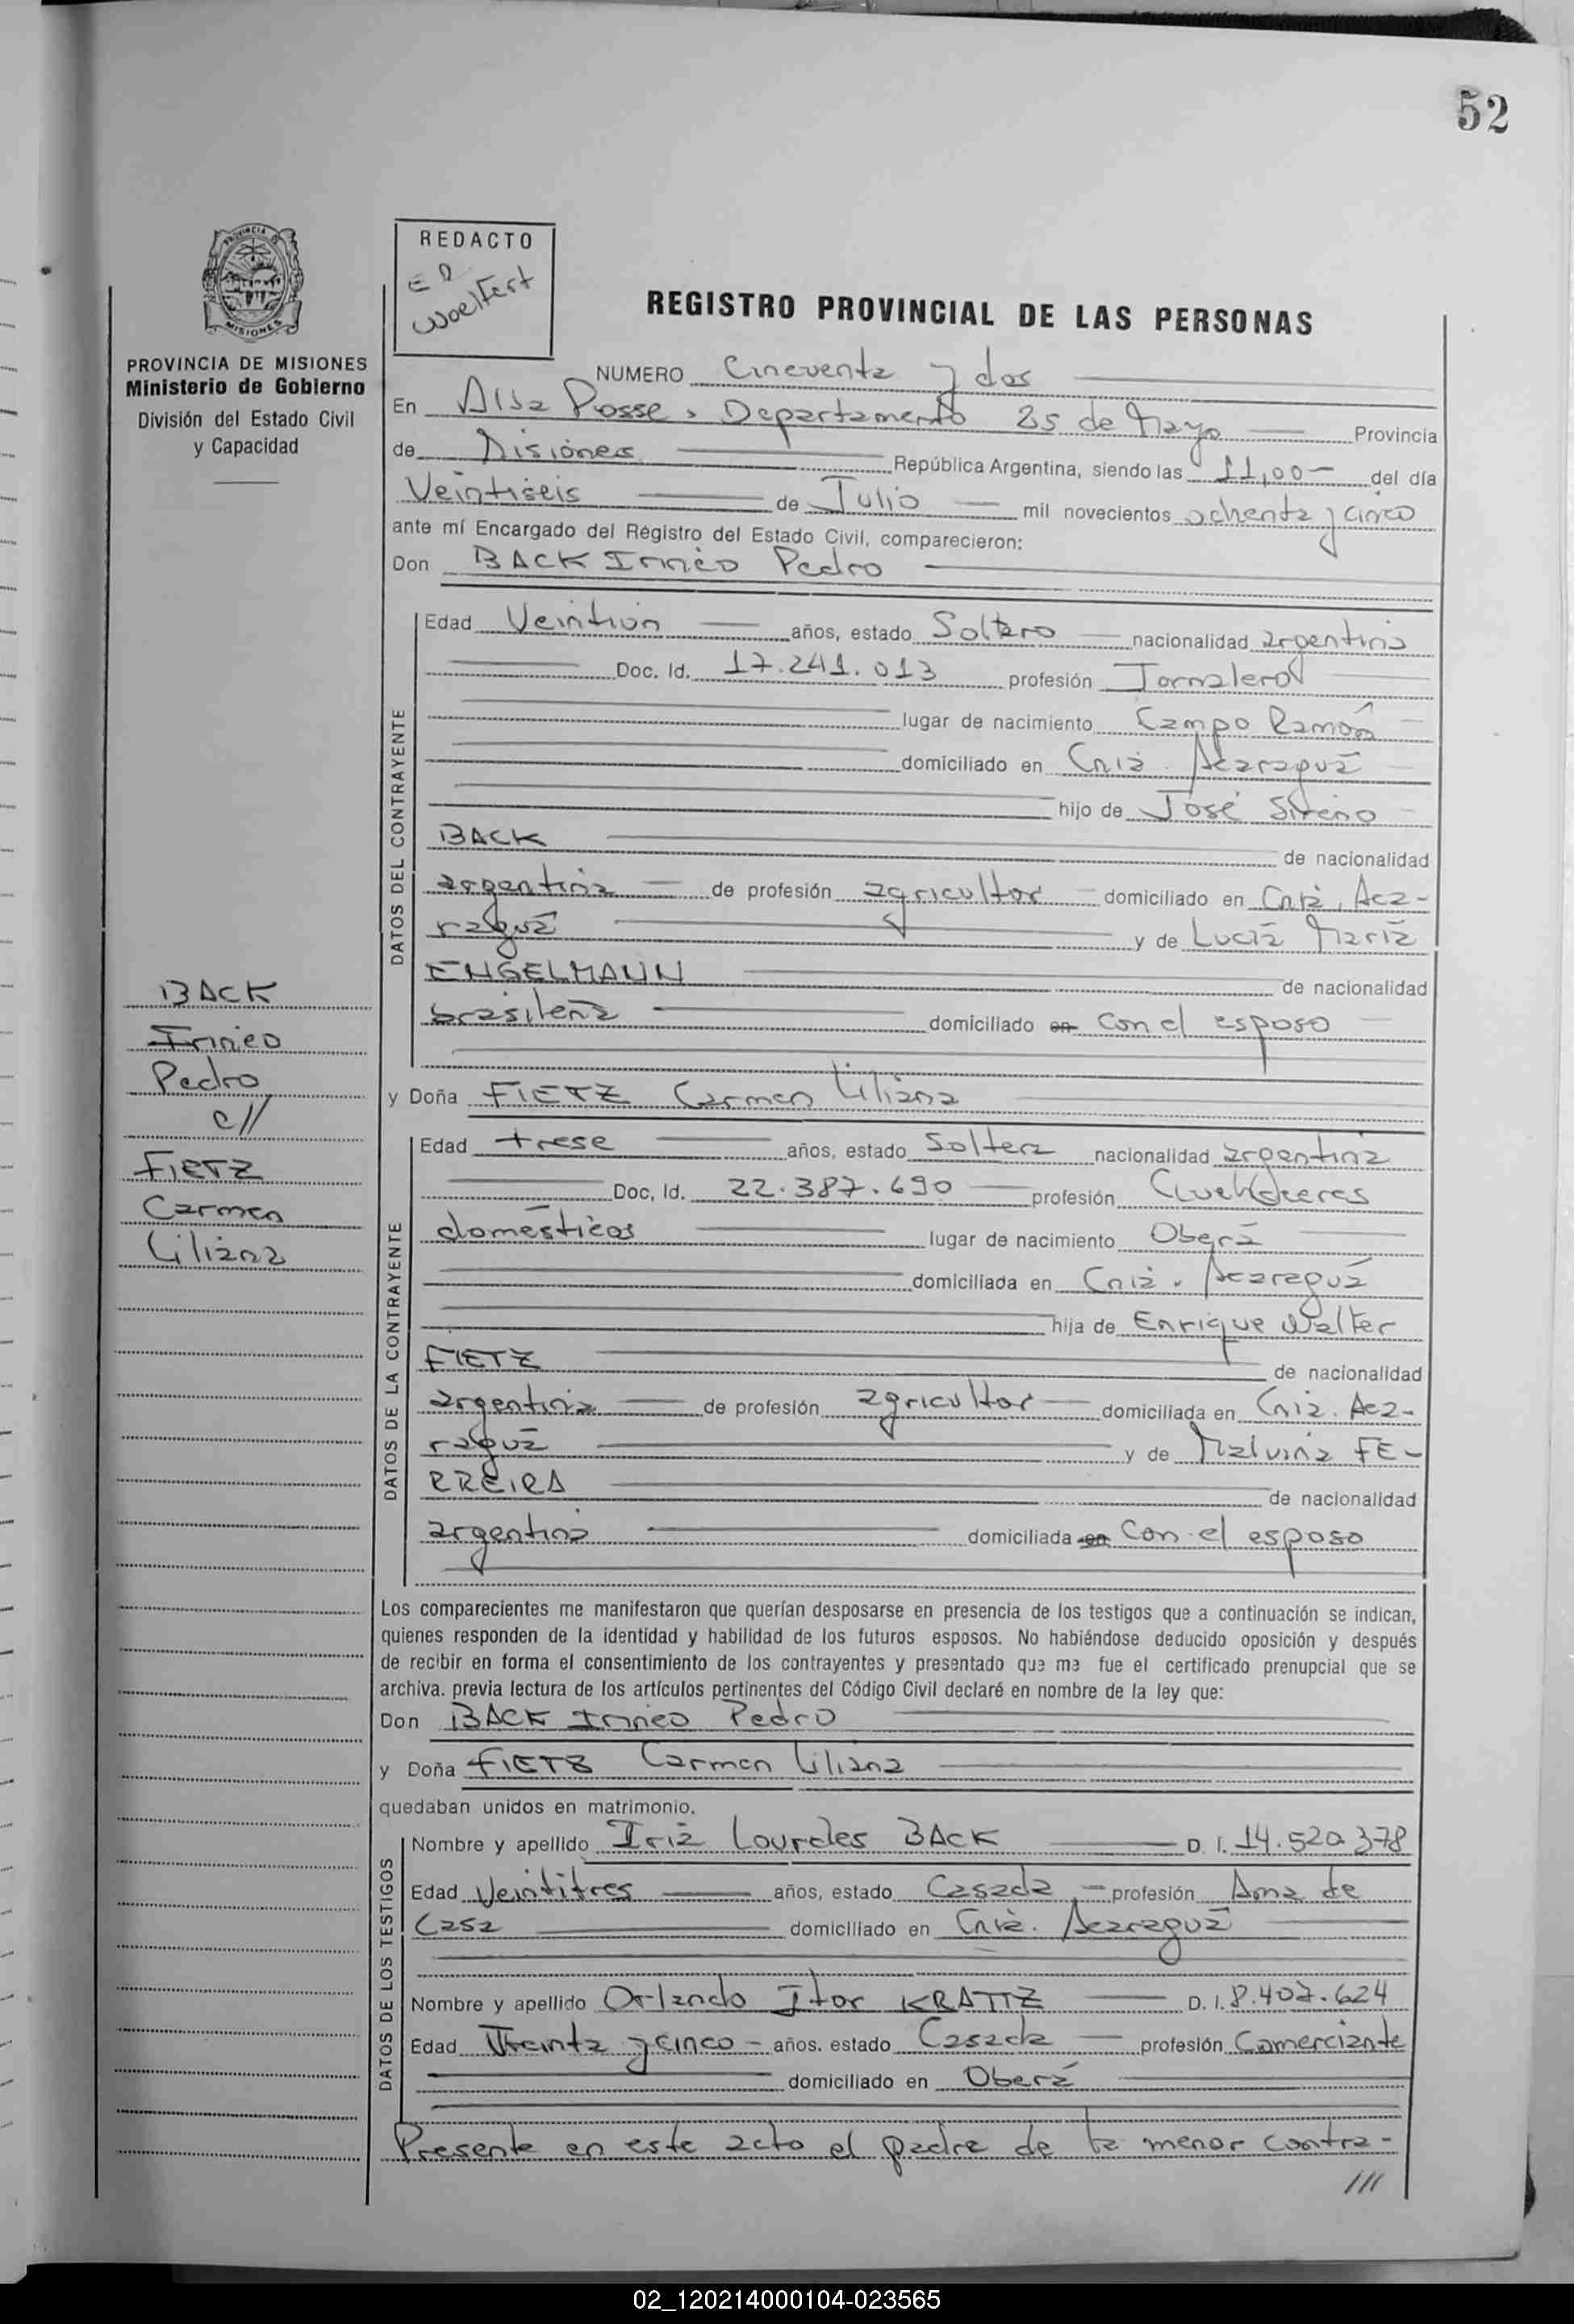 52
REDACTO
Woelfert
REGISTRO PROVINCIAL DE LAS PERSONAS
PROVINCIA DE MISIONES
Ministerio de Gobierno
División del Estado Civil
y Capacidad
NUMERO Cincuenta y dos
En Alba Posse, Departamento 25 de Mayo Provincia
de Misiones República Argentina, siendo las 11,00 del día
Veintiseis de Julio mil novecientos ochenta y cinco
ante mí Encargado del Registro del Estado Civil, comparecieron:
Don BACK Irineo Pedro
DATOS DEL CONTRAYENTE
Edad Veintiún años, estado Soltero nacionalidad argentina
Doc. Id. 17.241.013 profesión Jornalero
lugar de nacimiento Campo Ramón
domiciliado en Cnia. Acaraguá
hijo de José Sireno
BACK de nacionalidad
argentina de profesión agricultor domiciliado en Cnia. Aca-
raguá y de Lucía María
ENGELMANN de nacionalidad
brasilera domiciliado en con el esposo
y Doña FIETZ Carmen Liliana
DATOS DE LA CONTRAYENTE
Edad trese años, estado Soltera nacionalidad argentina
Doc, Id. 22.387.690 profesión Quehaceres
domésticos lugar de nacimiento Oberá
domiciliada en Cnia. Acaraguá
hija de Enrique Walter
FIETZ de nacionalidad
argentina de profesión agricultor domiciliada en Cnia. Aca-
raguá y de Malvina FE-
RREIRA de nacionalidad
argentina domiciliada en con el esposo
BACK
Irineo
Pedro
c//
FIETZ
Carmen
Liliana
Los comparecientes me manifestaron que querían desposarse en presencia de los testigos que a continuación se indican,
quienes responden de la identidad y habilidad de los futuros esposos. No habiéndose deducido oposición y después
de recibir en forma el consentimiento de los contrayentes y presentado que me fue el certificado prenupcial que se
archiva. previa lectura de los artículos pertinentes del Código Civil declaré en nombre de la ley que:
Don BACK Irineo Pedro
y Doña FIETZ Carmen Liliana
quedaban unidos en matrimonio.
DATOS DE LOS TESTIGOS
Nombre y apellido Iria Lourdes BACK D. I. 14.520.378
Edad Veintitres años, estado Casada profesión Ama de
Casa domiciliado en Cnia. Acaraguá
Nombre y apellido Orlando Itor KRATTZ D. I. 8.407.624
Edad Treinta y cinco años. estado Casado profesión Comerciante
domiciliado en Oberá
Presente en este acto el padre de la menor contra-
///
02_120214000104-023565